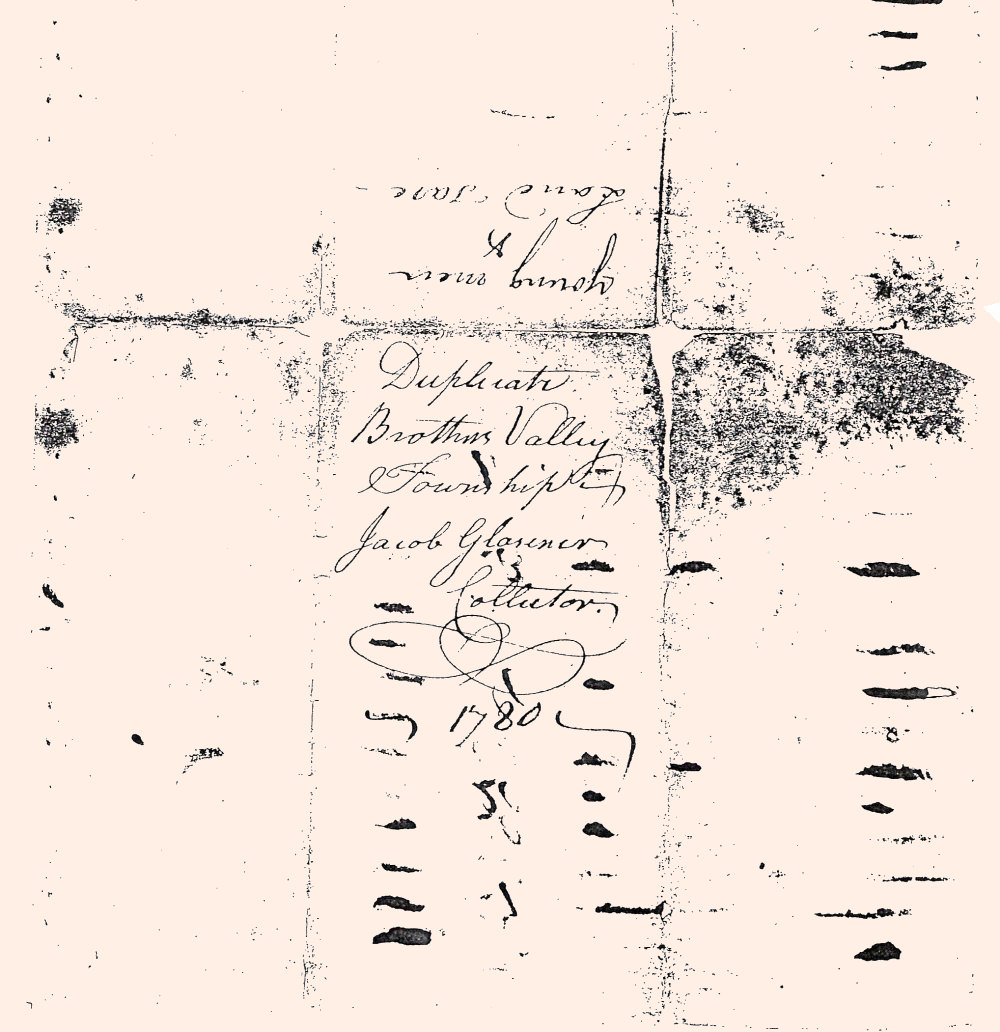 Young men
&
Land
Duplicate
Brothers Valley
Township
Jacob Glasener
Collector.
1780